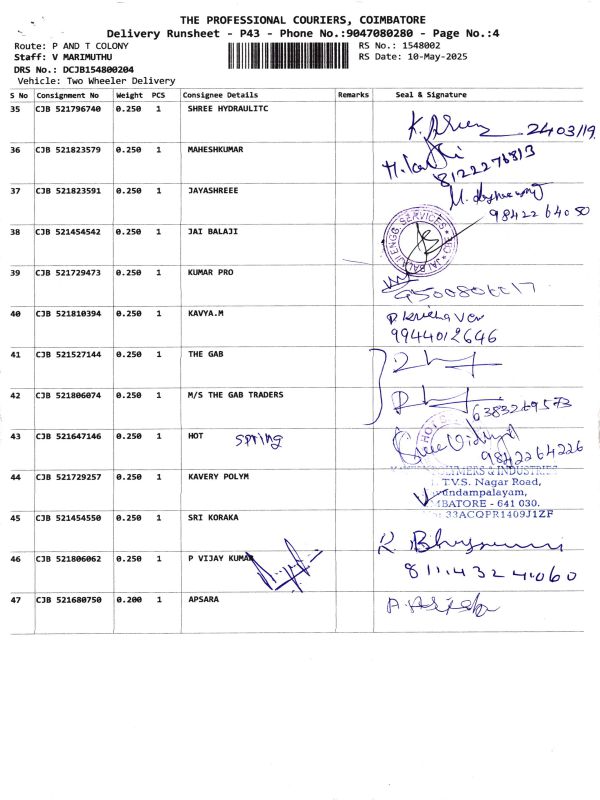 THE PROFESSIONAL COURIERS, COIMBATORE
Delivery Runsheet - P43 - Phone No.:9047080280 - Page No.:4
Route: P AND T COLONY
RS No.: 1548002
Staff: V MARIMUTHU
RS Date: 10-May-2025
DRS No.: DCJB154800204
Vehicle: Two Wheeler Delivery
S No Consignment No Weight PCS Consignee Details Remarks Seal & Signature
35 CJB 521796740 0.250 1 SHREE HYDRAULITC
2403/19
36 CJB 521823579 0.250 1 MAHESHKUMAR
8122276813
37 CJB 521823591 0.250 1 JAYASHREEE
98422 64080
38 CJB 521454542 0.250 1 JAI BALAJI
JAI BALAJI ENGG. SERVICES
39 CJB 521729473 0.250 1 KUMAR PRO
40 CJB 521810394 0.250 1 KAVYA.M
9944012646
41 CJB 521527144 0.250 1 THE GAB
42 CJB 521806074 0.250 1 M/S THE GAB TRADERS
6383269573
43 CJB 521647146 0.250 1 HOT spring
HOT S
9842264226
44 CJB 521729257 0.250 1 KAVERY POLYM
POLYMERS & INDUSTRIES
T.V.S. Nagar Road,
undampalayam,
MBATORE - 641 030.
33ACQPR1409J1ZF
45 CJB 521454550 0.250 1 SRI KORAKA
46 CJB 521806062 0.250 1 P VIJAY KUMAR
8114324060
47 CJB 521680750 0.200 1 APSARA